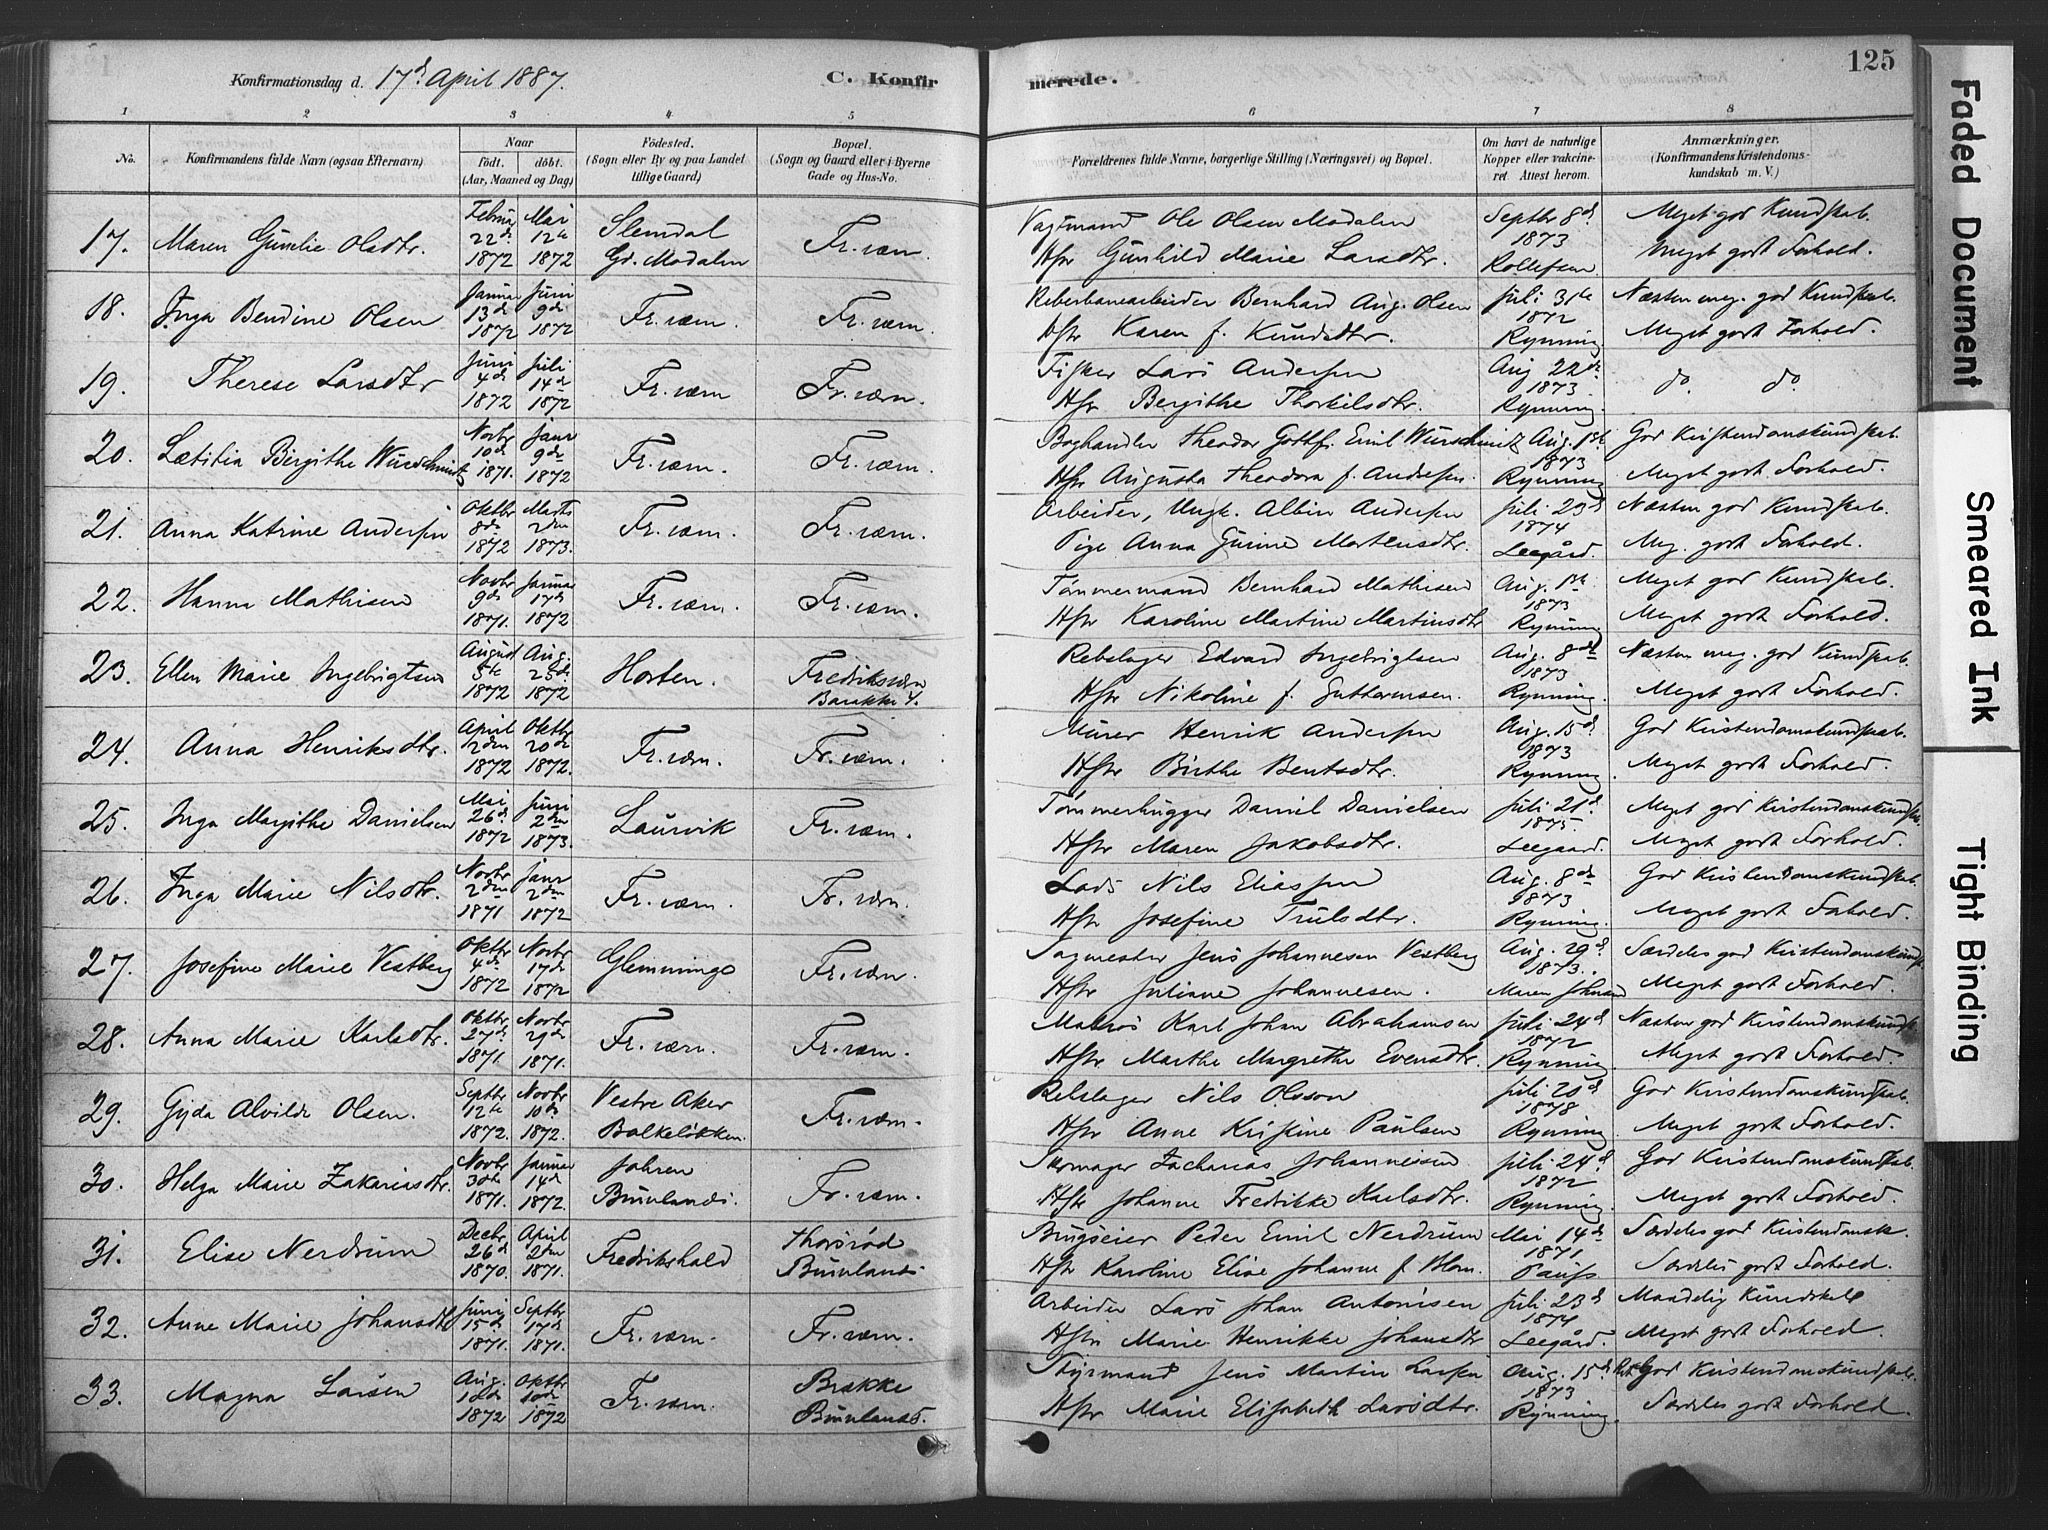 Konfirmationsdag d. 17d April 1887.
C. Konfirmerede.
125
1 2 3 4 5 6 7 8
No.
Konfirmandens fulde Navn (ogsaa Efternavn)
Naar
födt. döbt.
(Aar, Maaned og Dag)
Födested.
(Sogn eller By og paa Landet
tillige Gaard)
Bopæl.
(Sogn og Gaard eller i Byerne
Gade og Hus-No.
Forældrenes fulde Navne, borgerlige Stilling (Næringsvei) og Bopæl.
Om havt de naturlige
Kopper eller vakcine-
ret. Attest herom.
Anmærkninger.
(Konfirmandens Kristendoms-
kundskab m. V.)
17. Maren Gunelie Olsdtr. Februar 22de 1872 Mai 12te 1872 Slemdal Gd. Modalen Fr.værn. Vagtmand Ole Olsen Modalen Hstr Gunhild Marie Larsdtr. Septbr 8d 1873 Rollefsen Meget god Kundskab. Meget godt Forhold.
18. Inga Bendine Olsen Januar 13d 1872 Juni 9de 1872 Fr.værn. Fr.værn. Reberbanearbeider Bernhard Aug. Olsen Hstr Karen f. Knudsdtr. Juli 31te 1872 Rynning Næsten meg. god Kundskab. Meget godt Forhold.
19. Therese Larsdtr Juni 4de 1872 Juli 14de 1872 Fr.værn Fr.værn. Fisker Lars Andersen Hstr Bergithe Thorkilsdtr. Aug 22de 1873 Rynning. do. do.
20. Lætitia Birgithe Wurschmidt Novbr 10d 1871. Janr 9de 1872 Fr.værn. Fr.værn. Boghandler Theodor Gottf. Emil Wurschmitz Hstr Augusta Theodora f. Andersen. Aug. 1ste 1873 Rynning God Kristendomskundskab. Meget godt Forhold.
21. Anna Katrine Andersen Oktbr 8de 1872 Marts 2den 1873. Fr.værn. Fr.værn. Arbeider, Ungk. Albin Andersen Pige Anna Gurine Mortensdtr. Juli 23d 1874 Leegård. Næsten god Kundskab. Meg. godt Forhold.
22. Hanna Mathisen Novbr 9de 1871. Januar 17de 1872 Fr.værn. Fr.værn. Tømmermand Bernhard Mathisen Hstr Karoline Martine Martinsdtr Aug. 1ste 1873 Rynning Meget god Kundskab. Meget godt Forhold.
23. Ellen Marie Ingebrigtsen August 5te 1872 Aug. 25de 1872 Horten. Fredriksværn Barakke 4. Rebslager Edvard Ingebrigtsen Hstr Nikoline f. Guttormsen. Aug. 8de 1873 Rynning. Næsten meg. god Kundskab. Meget godt Forhold.
24. Anna Henriksdtr. April 12den 1872 Oktbr 20de 1872. Fr.værn. Fr.værn. Murer Henrik Andersen Hstr Birthe Bentsdtr. Aug. 15d 1873 Rynning. God Kristendomskundskab. Meget godt Forhold.
25. Inga Margithe Danielsen Mai 26d. 1872 Juni 2den 1873. Laurvik Fr.værn. Tømmerhugger Daniel Danielsen Hstr Maren Jakobsdtr. Juli 21d 1875. Leegaard. Meget god Kristendomskundskab. Meget godt Forhold.
26. Inga Marie Nilsdtr. Novbr 2den 1871 Janr 2den 1872 Fr.værn. Fr.værn. Lods Nils Eliassen Hstr Josefine Trulsdtr. Aug. 8de 1873 Rynning. God Kristendomskundskab. Meget godt Forhold.
27. Josefine Marie Vestberg Oktbr 4de 1872 Novbr 17de 1872 Glemminge Fr.værn. Sagmester Jens Johannesen Vestberg Hstr Juliane Johannesen. Aug. 29d 1873. Maren Johnsen Særdeles god Kristendomskundsk. Meget godt Forhold.
28. Anna Marie Karlsdtr. Oktbr 27de 1871. Novbr 29de 1871. Fr.værn. Fr.værn. Matros Karl Johan Abrahamsen Hstr Marthe Margrethe Evensdtr. Juli 24d 1872 Rynning. Næsten god Kristendomskundsk. Meget godt Forhold.
29. Gyda Alvilde Olsen. Septbr 12te 1872. Novbr 10de 1872. Vestre Aker Balkeløkken. Fr.værn. Rebslager Nils Olsson Hstr Anne Kristine Paulsen Juli 20d 1878 Rynning. God Kristendomskundskab. Meget godt Forhold.
30. Helga Marie Zakariasdtr. Novbr 30te 1871. Januar 14d 1872. Johren Brunlanæs. Fr.værn. Skomager Zacharias Johannesen Hstr Johanne Fredrikke Karlsdtr. Juli 24d. 1872 Rynning. God Kristendomskundskab. Meget godt Forhold.
31. Elise Nerdrum Decbr 26d 1870. April 2den 1871. Fredrikshald Thorsrød Brunlanæs Brugseier Peder Emil Nerdrum Hstr Karoline Elise Johanne f. Blom. Mai 14de 1871 Pauss Særdeles god Kristendomsk. Særdeles godt Forhold.
32. Anne Marie Johansdtr Juni 15de 1871. Septbr 17de 1871. Fr.værn. Fr.værn. Arbeider Lars Johan Antonisen Hstr Marie Henrikke Johansdtr Juli 23d 1874 Leegård. Maadelig Kundskab Meget godt Forhold.
33. Magna Larsen Aug. 18de 1872 Oktbr 10de 1872 Fr.værn. Brække Brunlanæs. Styrmand Jens Martin Larsen Hstr Marie Elisabeth Larsdtr. Aug. 15d 1873 Rynning. God Kristendomskundskab. Særdeles godt Forhold.
Faded Document
Smeared Ink
Tight Binding